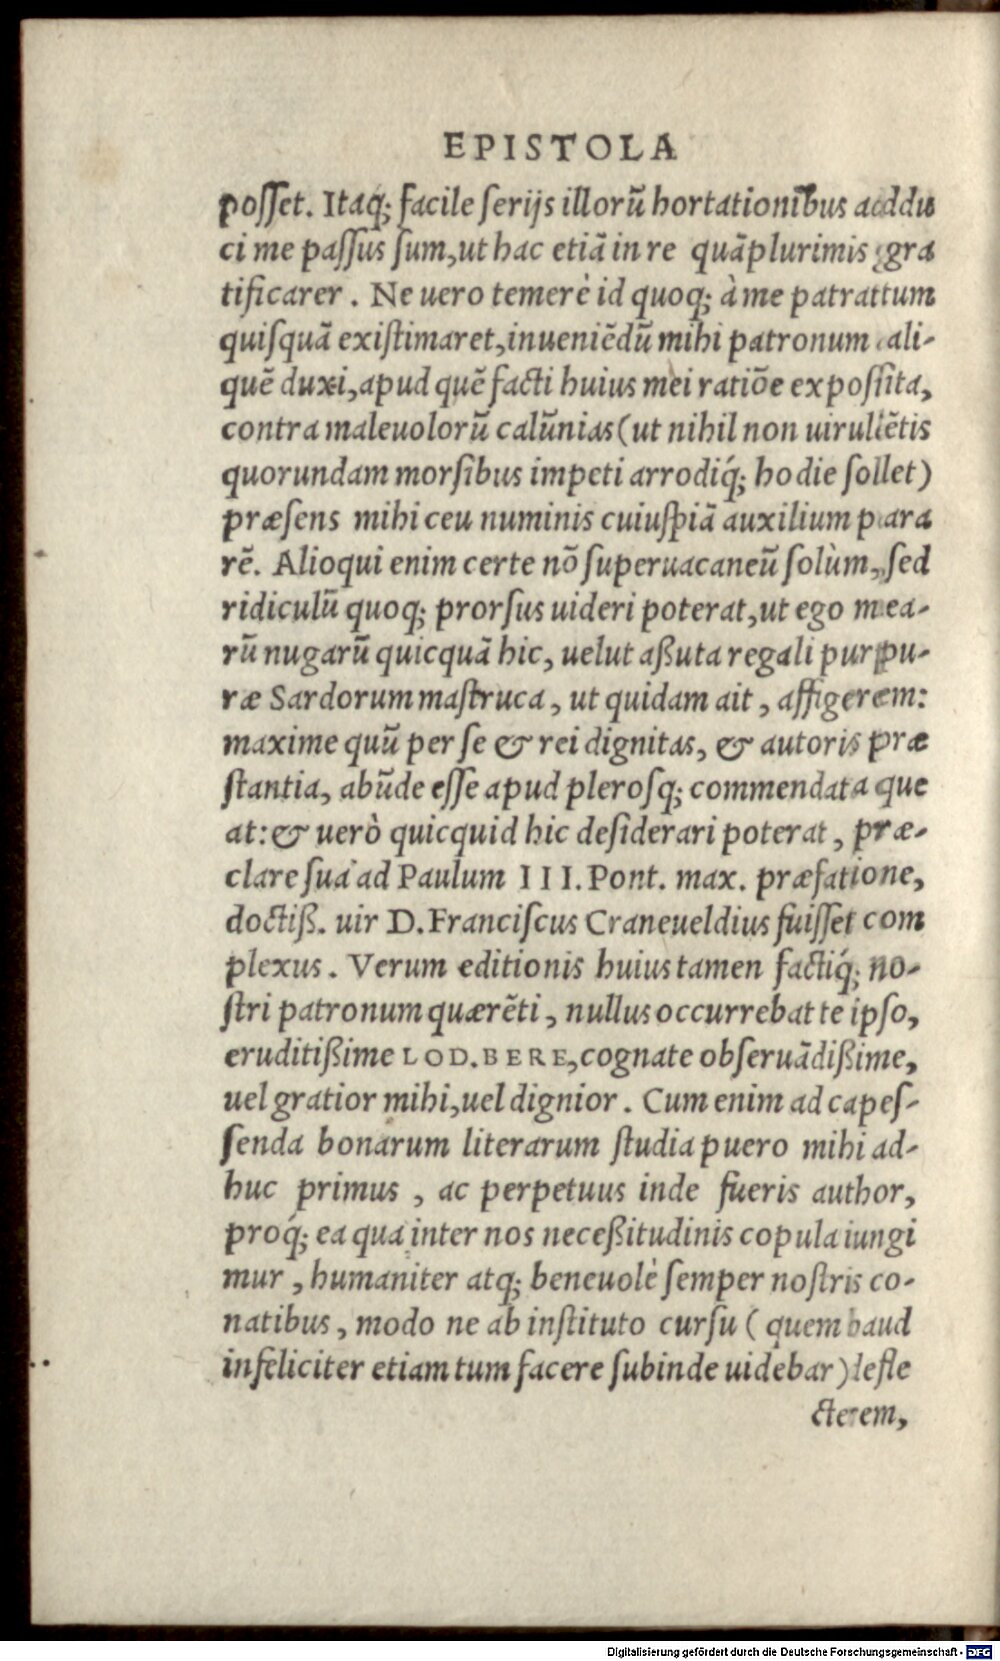 EPISTOLA
posset. Itaq́; facile serijs illorũ hortationĩbus addu
ci me passus sum, ut hac etiã in re quãplurimis gra
tificarer. Ne uero temerè id quoq; à me patrattum
quisquã existimaret, inueniẽdũ mihi patronum ali-
quẽ duxi, apud quẽ facti huius mei ratiõe exposita,
contra maleuolorũ calũnias (ut nihil non uirulẽtis
quorundam morsibus impeti arrodiq́; hodie sollet)
præsens mihi ceu numinis cuiuspiã auxilium para
rẽ. Alioqui enim certe nõ superuacaneũ solùm, sed
ridiculũ quoq; prorsus uideri poterat, ut ego mea-
rũ nugarũ quicquã hic, uelut aßuta regali purpu-
ræ Sardorum mastruca, ut quidam ait, affigerem:
maxime quũ per se & rei dignitas, & autoris præ
stantia, abũde esse apud plerosq; commendata que
at: & uerò quicquid hic desiderari poterat, præ-
clare sua ad Paulum III. Pont. max. præfatione,
doctiß. uir D. Franciscus Craneueldius fuisset com
plexus. Verum editionis huius tamen factiq́; no-
stri patronum quærẽti, nullus occurrebat te ipso,
eruditißime LOD. BERE, cognate obseruãdißime,
uel gratior mihi, uel dignior. Cum enim ad capes-
senda bonarum literarum studia puero mihi ad-
huc primus, ac perpetuus inde fueris author,
proq́; ea qua inter nos neceßitudinis copula iungi
mur, humaniter atq; beneuolè semper nostris co-
natibus, modo ne ab instituto cursu (quem haud
infeliciter etiam tum facere subinde uidebar) defle
cterem,
Digitalisierung gefördert durch die Deutsche Forschungsgemeinschaft - DFG